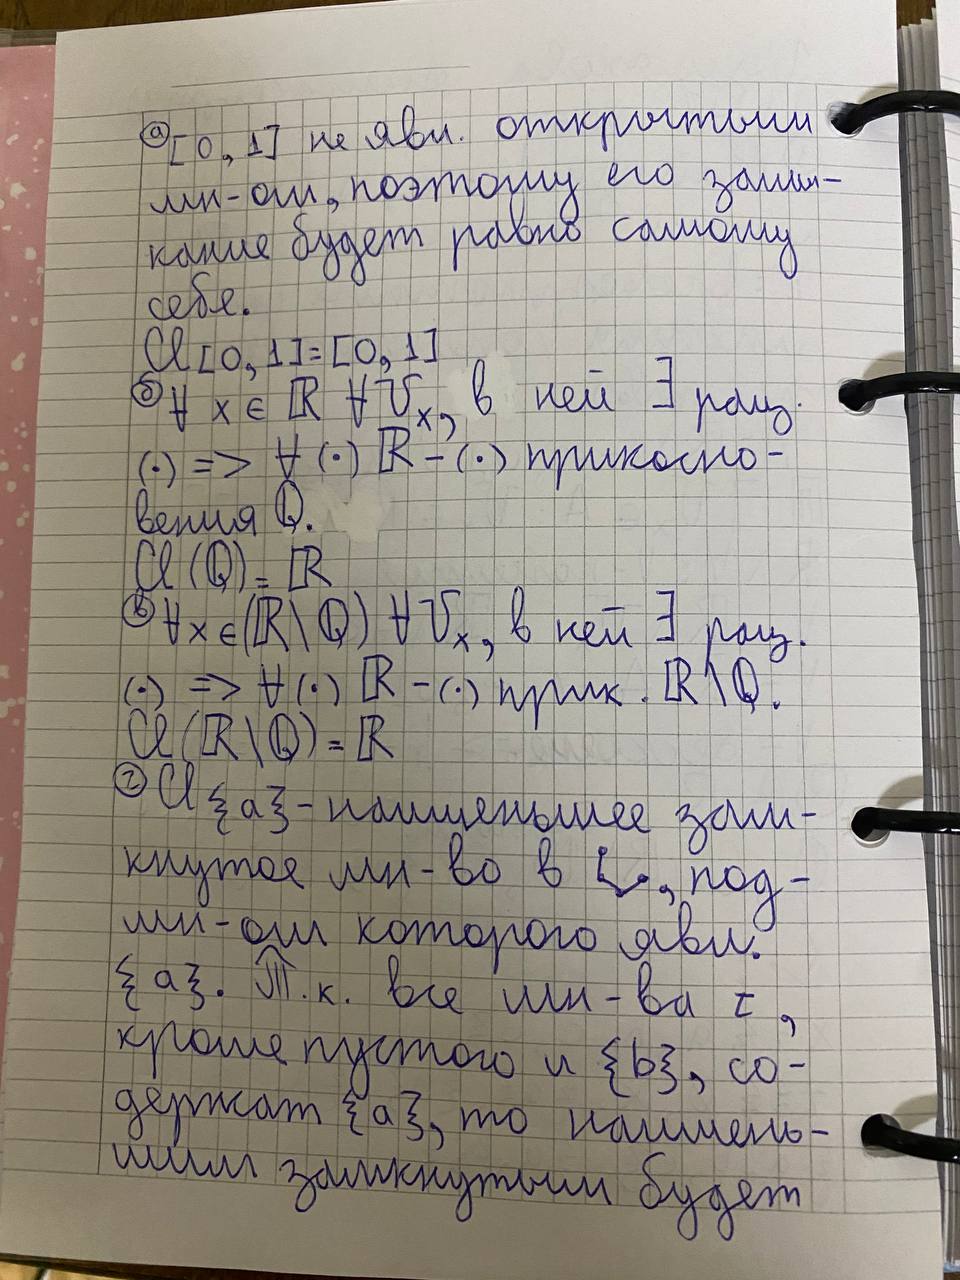 а) [0, 1] не явл. открытым
мн-ом, поэтому его замы-
кание будет равно самому
себе.
Cl [0, 1] = [0, 1]
б) ∀ x ∈ ℝ ∀ U_x, в ней ∃ рац.
(·) => ∀ (·) ℝ – (·) прикосно-
вения ℚ.
Cl (ℚ) = ℝ
в) ∀ x ∈ (ℝ \ ℚ) ∀ U_x, в ней ∃ рац.
(·) => ∀ (·) ℝ – (·) прик. ℝ \ ℚ.
Cl (ℝ \ ℚ) = ℝ
г) Cl {a} – наименьшее зам-
кнутое мн-во в , под-
мн-ом которого явл.
{a}. Т.к. все мн-ва τ,
кроме пустого и {b}, со-
держат {a}, то наимень-
шим замкнутым будет